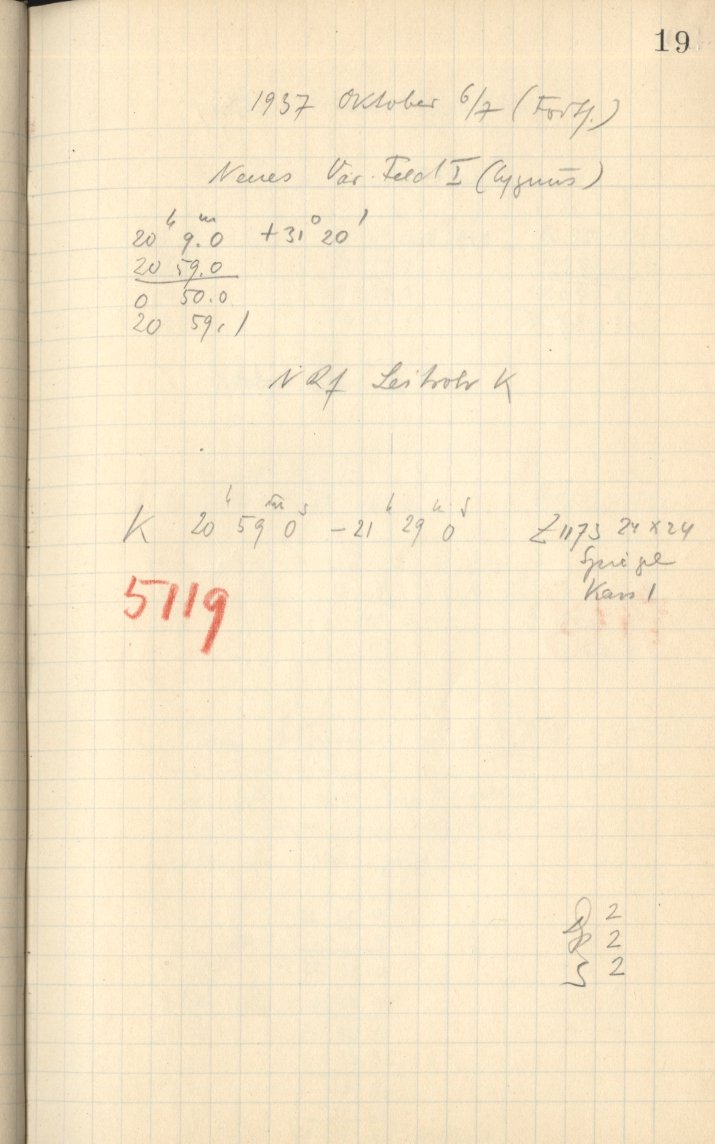 19
1937 Oktober 6/7 (Forts.)
Neues Var. Feld I (Cygnus)
20ʰ 9.ᵐ0 +31° 20'
20 59.0
0 50.0
20 59.1
N Rf Leitrohr K
K 20ʰ 59ᵐ 0ˢ – 21ʰ 29ᵐ 0ˢ Z 1173 24 x 24
Spiegel
Kass 1
5119
2
2
2